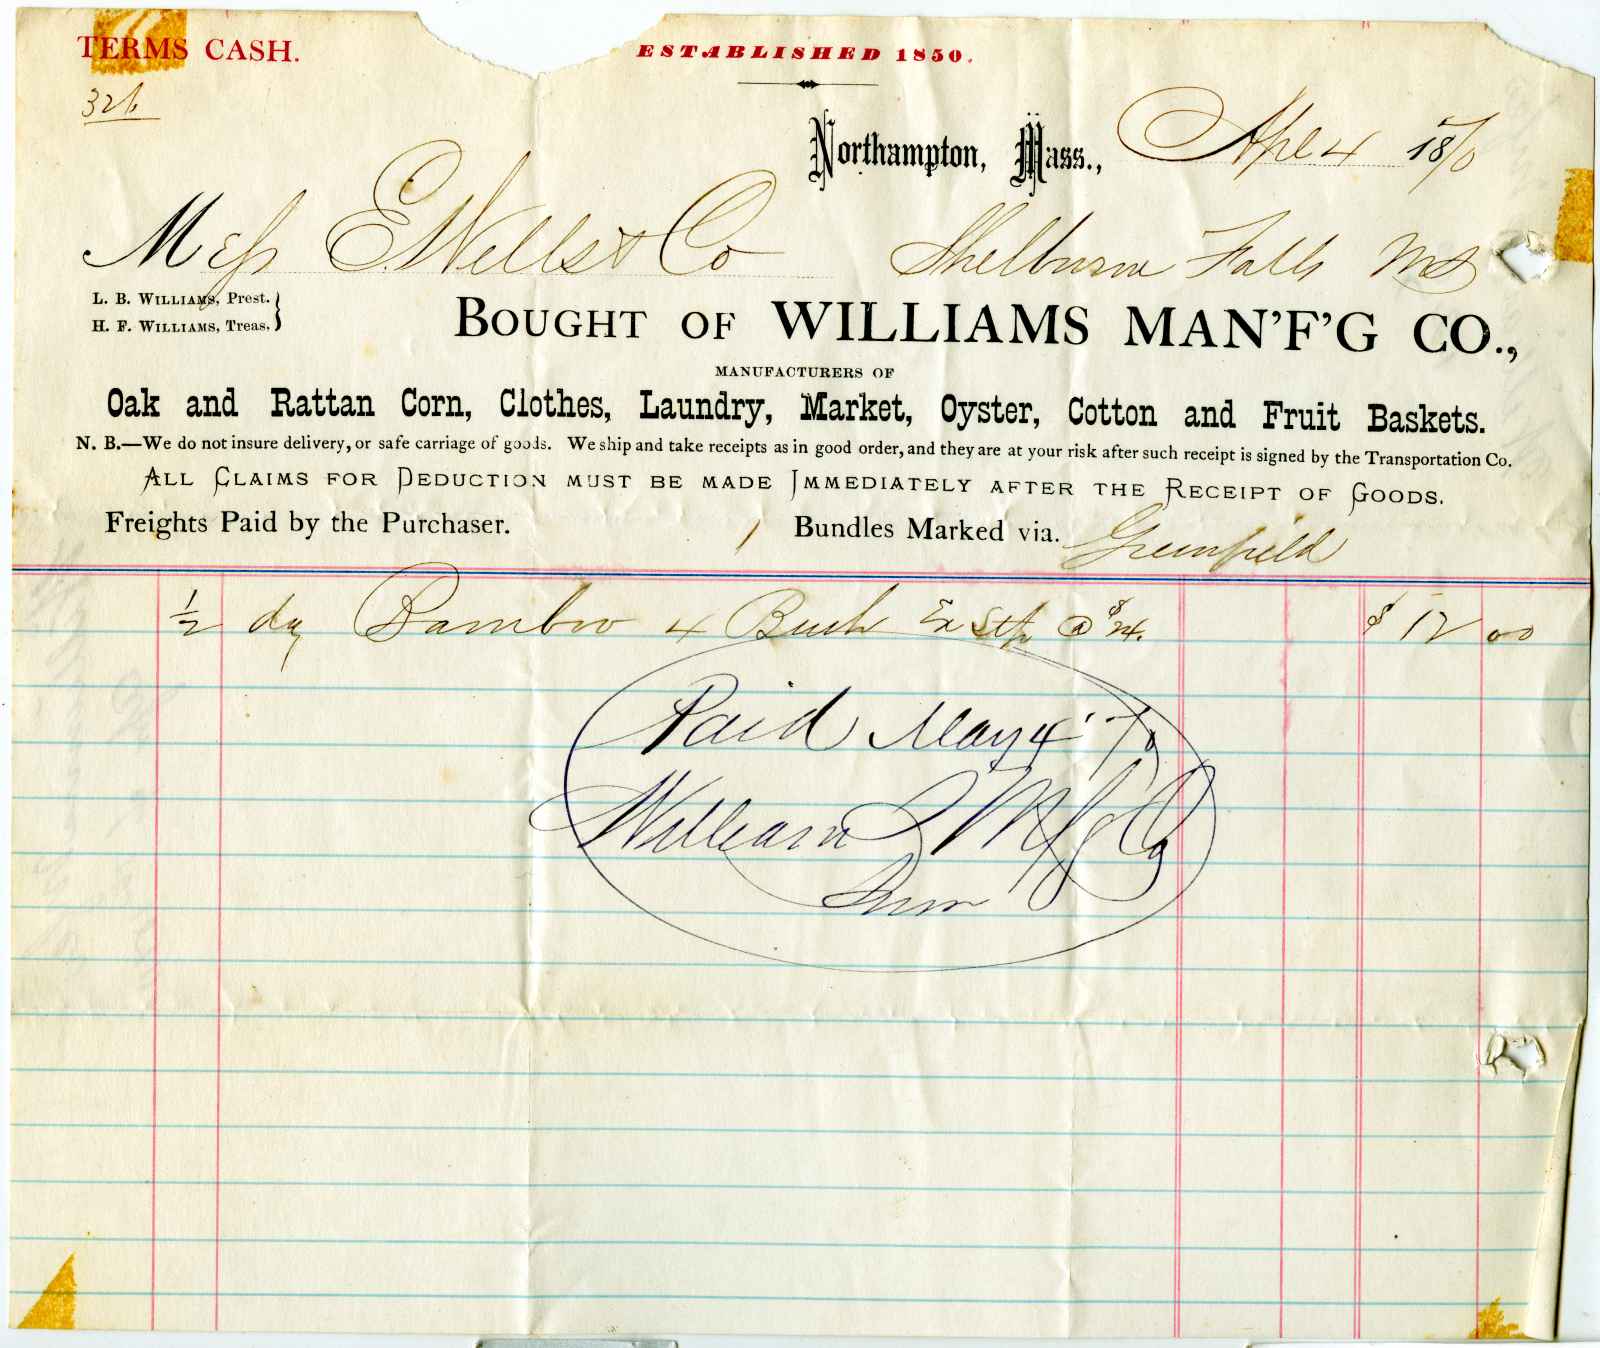 TERMS CASH.
ESTABLISHED 1850.
326
Northampton, Mass., Apl 4 1870
Mess E. Wells & Co Shelburne Falls Ms
L. B. WILLIAMS, Prest.
H. F. WILLIAMS, Treas.
BOUGHT OF WILLIAMS MAN'F'G CO.,
MANUFACTURERS OF
Oak and Rattan Corn, Clothes, Laundry, Market, Oyster, Cotton and Fruit Baskets.
N. B.—We do not insure delivery, or safe carriage of goods. We ship and take receipts as in good order, and they are at your risk after such receipt is signed by the Transportation Co.
ALL CLAIMS FOR DEDUCTION MUST BE MADE IMMEDIATELY AFTER THE RECEIPT OF GOODS.
Freights Paid by the Purchaser. 1 Bundles Marked via. Greenfield
1/2 dz Bamboo 4 Bush Ex @ $24. $ 12 00
Paid May 4' 70
Williams Mfg Co